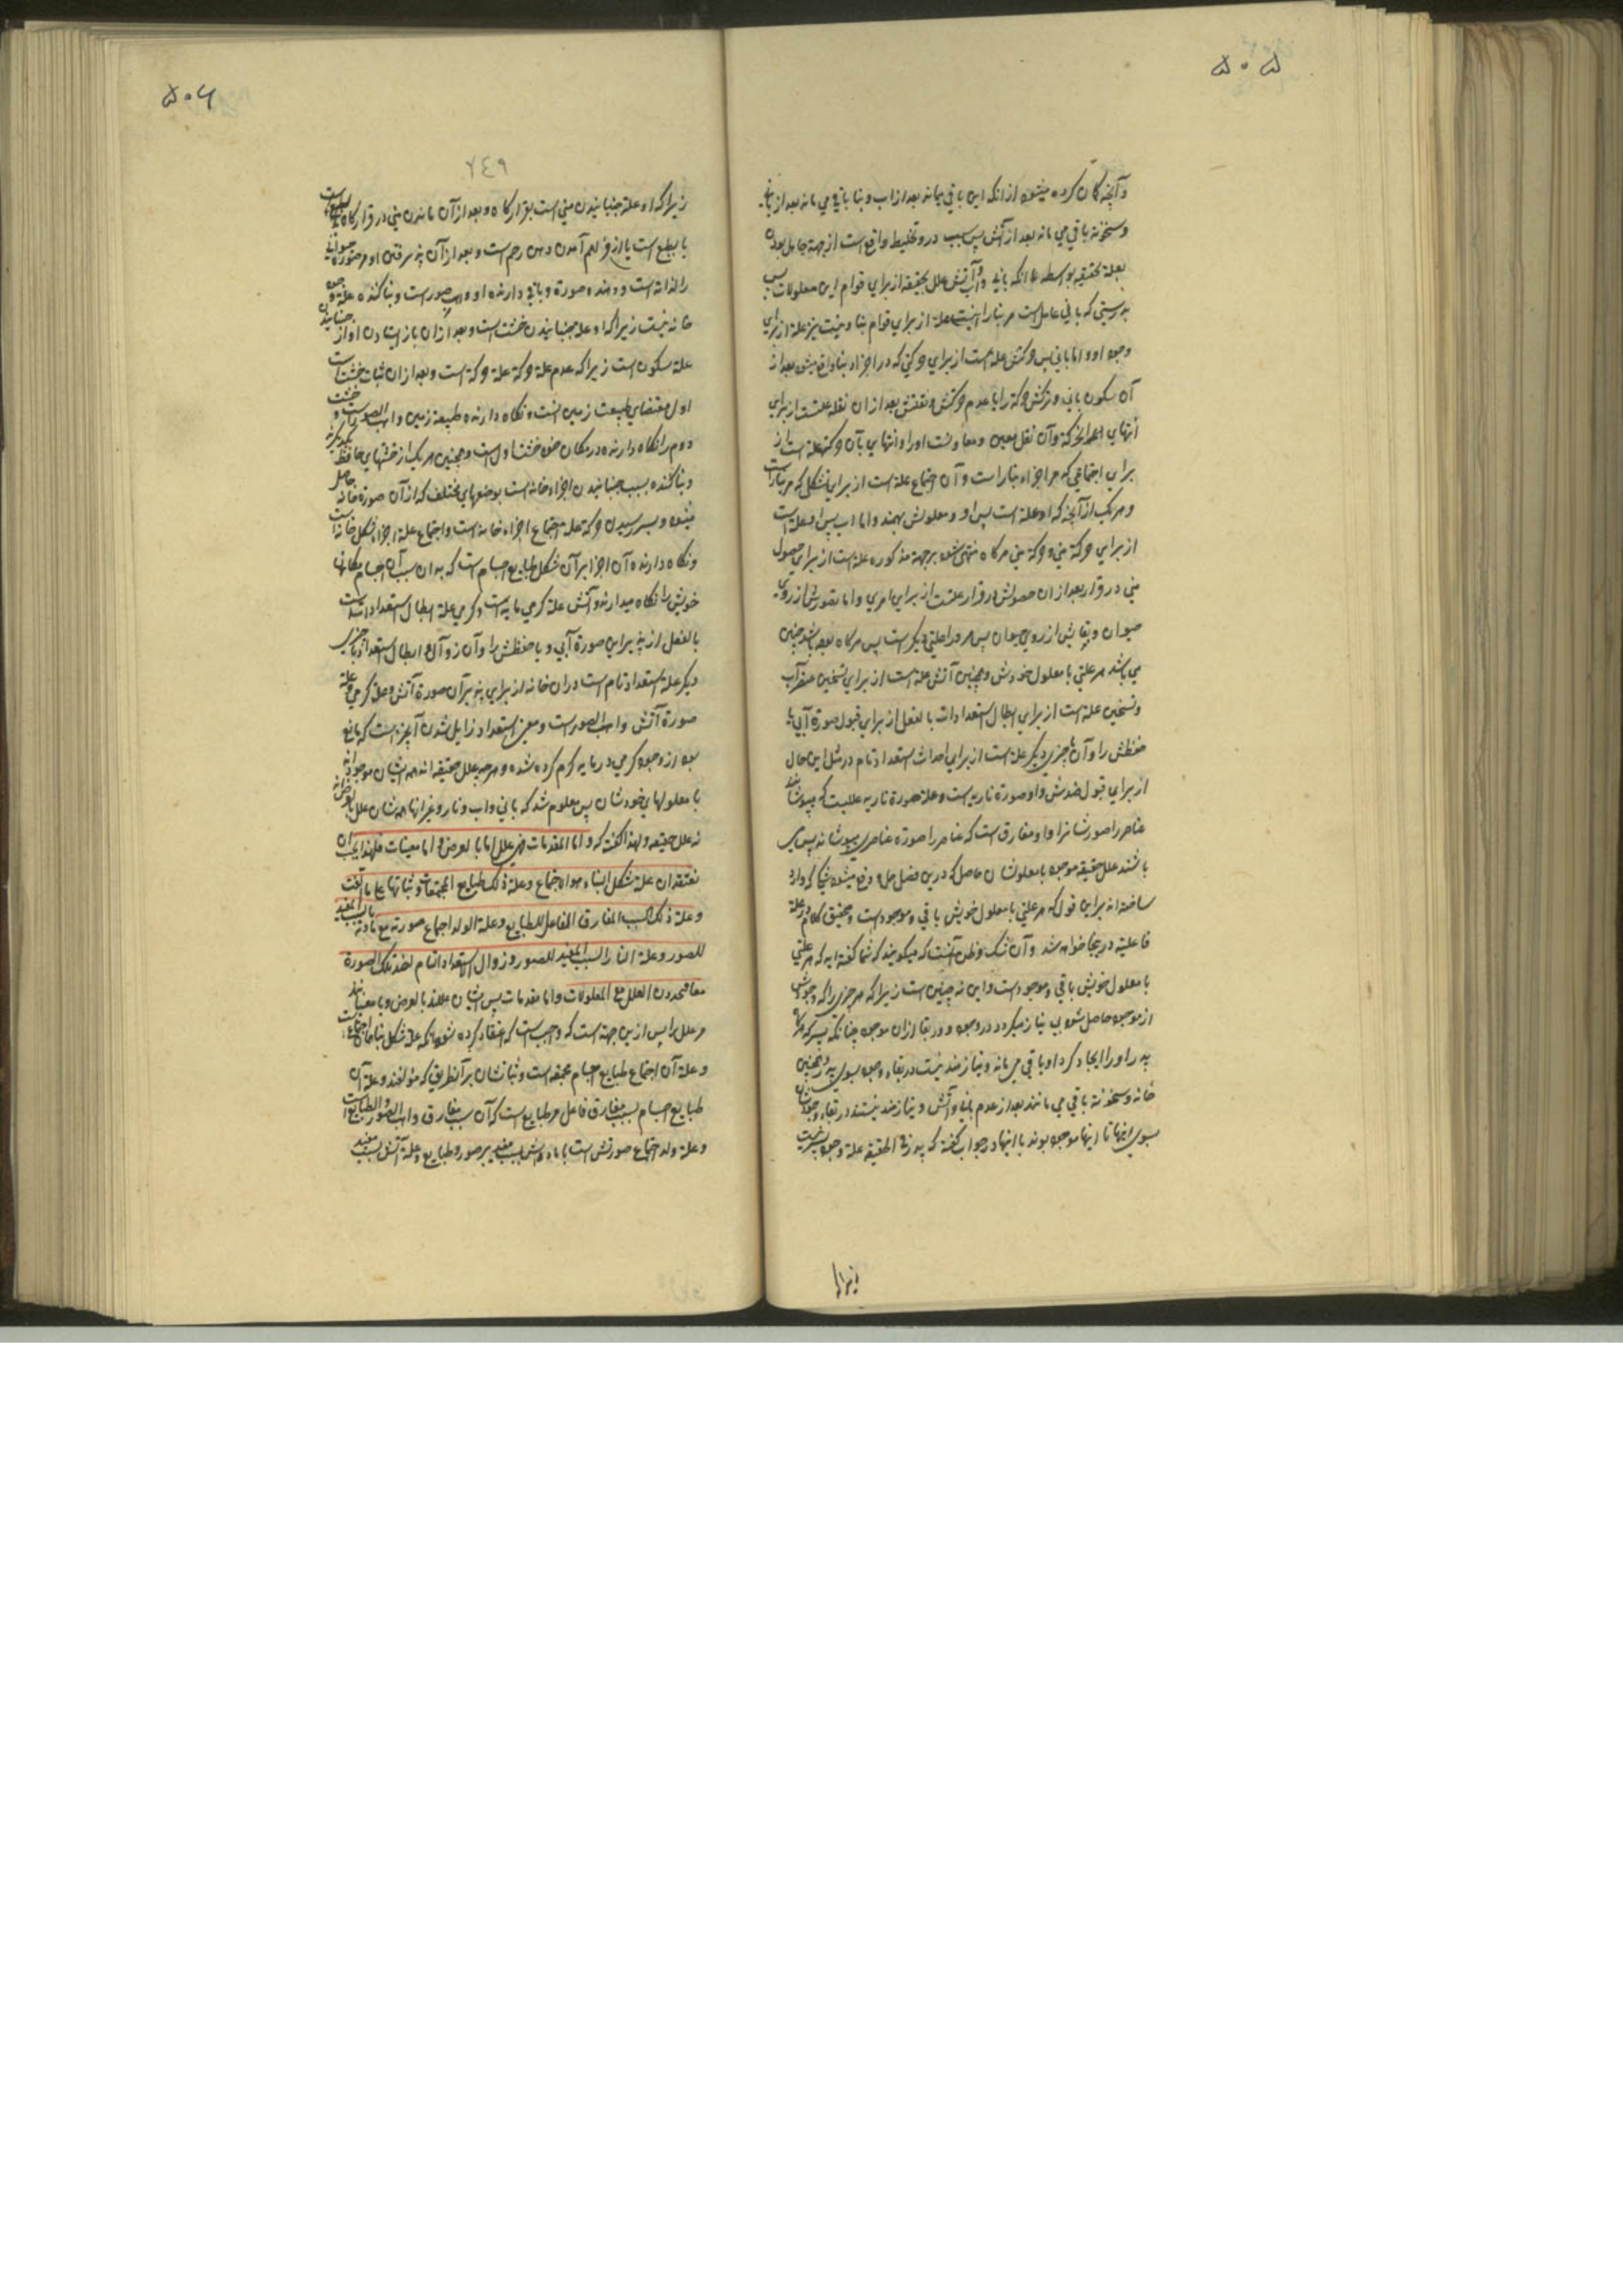 ۵۰۵
وآنچه گمان کرده میشود از آنکه ابن باقی میماند بعد از اب وبنا باقی می ماند بعد از بانی
وسخونه باقی می ماند بعد از آتش پس سبب درو تخلیط واقع است از جهة جاهل بودن
بعلة بحقیقه بواسطه انکه بانی واب وآتش علل بحقیقه از برای قوام این معلولات پس
بدرستی که بانی عامل است مر بنا را نیست علة از برای قوام بنا ونیست نیز علة از برای
وجود او واما بانی پس حرکتش علة است از برای حرکتی که در اجزاء بنا واقع میشود بعد از
آن سکون بانی وترکش حرکة را یا عدم حرکتش ونقلش بعد از ان نقله علتست از برای
انتهای این حرکة وآن نقل بعین
برای اجتماعی که مر اجزاء بنا راست وآن اجتماع علة است از برای شکل که مر بنا راست
وهر یک از آنچه که او علة است پس او ومعلولش بهمند واما اب پس او علة است
از برای حرکة منی وحرکة منی هرگاه منتهی شود بر جهة مذکوره علة است از برای حصول
منی در قرار بعد از ان حصولش در قرار علتست از برای امری واما تصورش از روی
حیوان وبقایش از روی حیوان پس مر او را علتی دیگر است پس هرگاه بوده باشد چنین
می باشد هر علتی با معلول خودش وهمچنین آتش علة است از برای تسخین عنصر آب
وتسخین علة است از برای ابطال استعدادات بالفعل از برای قبول صورة آبی یا
حفظش را وآن یا چیزی دیگر علة است از برای احداث استعداد تام در مثل این حال
از برای قبول ضدش واو صورة ناریه است وعلة صورة ناریه عللیست که میپوشاند
عناصر را صورشانرا واو مفارق است که عناصر را صورة عناصری میپوشاند پس می
باشند علل حقیقه موجود با معلولشان حاصل که درین فصل حل ودفع میشود شکی که وارد
ساخته اند برین قول که هر علتی با معلول خویش باقی وموجود است وتحقیق کلام در علة
فاعلیة درینجا خواهد شد وآن شک وظن آنست که میگویند که شما گفته اید که هر علتی
با معلول خویش باقی وموجود است واین نه چنین است زیرا که هر چیزی را که وجودش
از موجود حاصل شود بی نیاز میگردد در وجود ودر بقا از ان موجود چنانکه پسر که هرگاه
پدر او را ایجاد کرد او باقی می ماند ونیازمند نیست در بقاء وجود بسوی پدر وهمچنین
خانه وسخونة باقی می مانند بعد از عدم بانی وآتش ونیازمند نیستند در بقاء وجودشان
بسوی اینها تا اینها موجود بوند با اینها در جواب گفته که پدر فی الحقیقه علة وجود پسر نیست
زیرا
۵۰۶
۷٤۹
زیرا که او علة جنبانیدن منی است بقرارگاه وبعد از آن ماندن منی در قرارگاه
بالطبع است یا از فراهم آمدن دهن رحم است وبعد از آن پذیرفتن او مر صورة حیوانی
را لذاته است ودهنده صورة وباقی دارنده او واهب صور است وبناکننده علة وجود
خانه نیست زیرا که او علة جنبانیدن خشت است وبعد از ان باز ایستادن او از جنبانیدن
علة سکون است زیرا که عدم علة حرکة علة حرکة است وبعد از ان ثبات خشت
اول مقتضای طبیعت زمین است ونگاه دارنده طبیعة زمین واهب الصور است وخشت
دوم را نگاه دارنده در مکان خود خشت اول است وهمچنین هر یک از خشتهای حافظ یکدیگرند
وبناکننده بسبب جنبانیدن اجزاء خانه است بوضعهای مختلف که از آن صورة خانه حاصل
میشود وبسر رسیدن حرکة علة اجتماع اجزاء خانه است واجتماع علة اجزاء شکل خانه است
ونگاه دارنده آن اجزا بر آن شکل طبایع اجسام است که بدان سبب آن اجسام مکانها
خویش را نگاه میدارند وآتش علة گرمی مایه است وگرمی علة ابطال استعدادات است
بالفعل از پذیرایی صورة آبی ویا حفظش را وآن زوال وابطال استعداد با چیزی
دیگر علة استعداد تام است در ان خانه از برای پذیر آن صورة آتش وعلة گرمی وعلة
صورة آتش واهب الصور است ومعین استعداد زایل شدن آنچیز است که مانع
بود از وجود گرمی در مایه گرم کرده شده وهر چه بعلل حقیقه اند همه ایشان موجود اند
با معلولهای خودشان پس معلوم شد که بانی واب ونار وغیر اینها همه شان علل بالعرض اند
نه علل حقیقه ولهذا گفته که واما المقدمات فهی علل اما بالعرض واما معینات فلهذا یجب ان
نعتقد ان علة شکل البناء هو الاجتماع وعلة ذلک طبایع المجتمعات وثباتها علی ما الفت
وعلة ذلک السبب المفارق الفاعل للطبایع وعلة الولد اجتماع صورته مع مادته بالسبب المفید
للصور وعلة النار السبب المفید للصور وزوال الاستعداد التام لضد تلک الصورة
معا فنجد ان العلل مع المعلولات واما مقدمات پس ایشان عللند بالعرض ویا معینانند
مر علل را پس ازین جهة است که واجب است که اعتقاد کرده شود آنکه علة شکل بنا همان اجتماع است
وعلة آن اجتماع طبایع اجسام مجتمعه است وثباتشان بر آنطریقی که مؤلفند وعلة آن
طبایع اجسام سبب مفارق فاعل مر طبایع است که آن سبب مفارق واهب الصور والطبایع است
وعلة ولد اجتماع صورتش است با ماده اش بسبب مفید مر صور وطبایع وعلة آتش سبب مفید